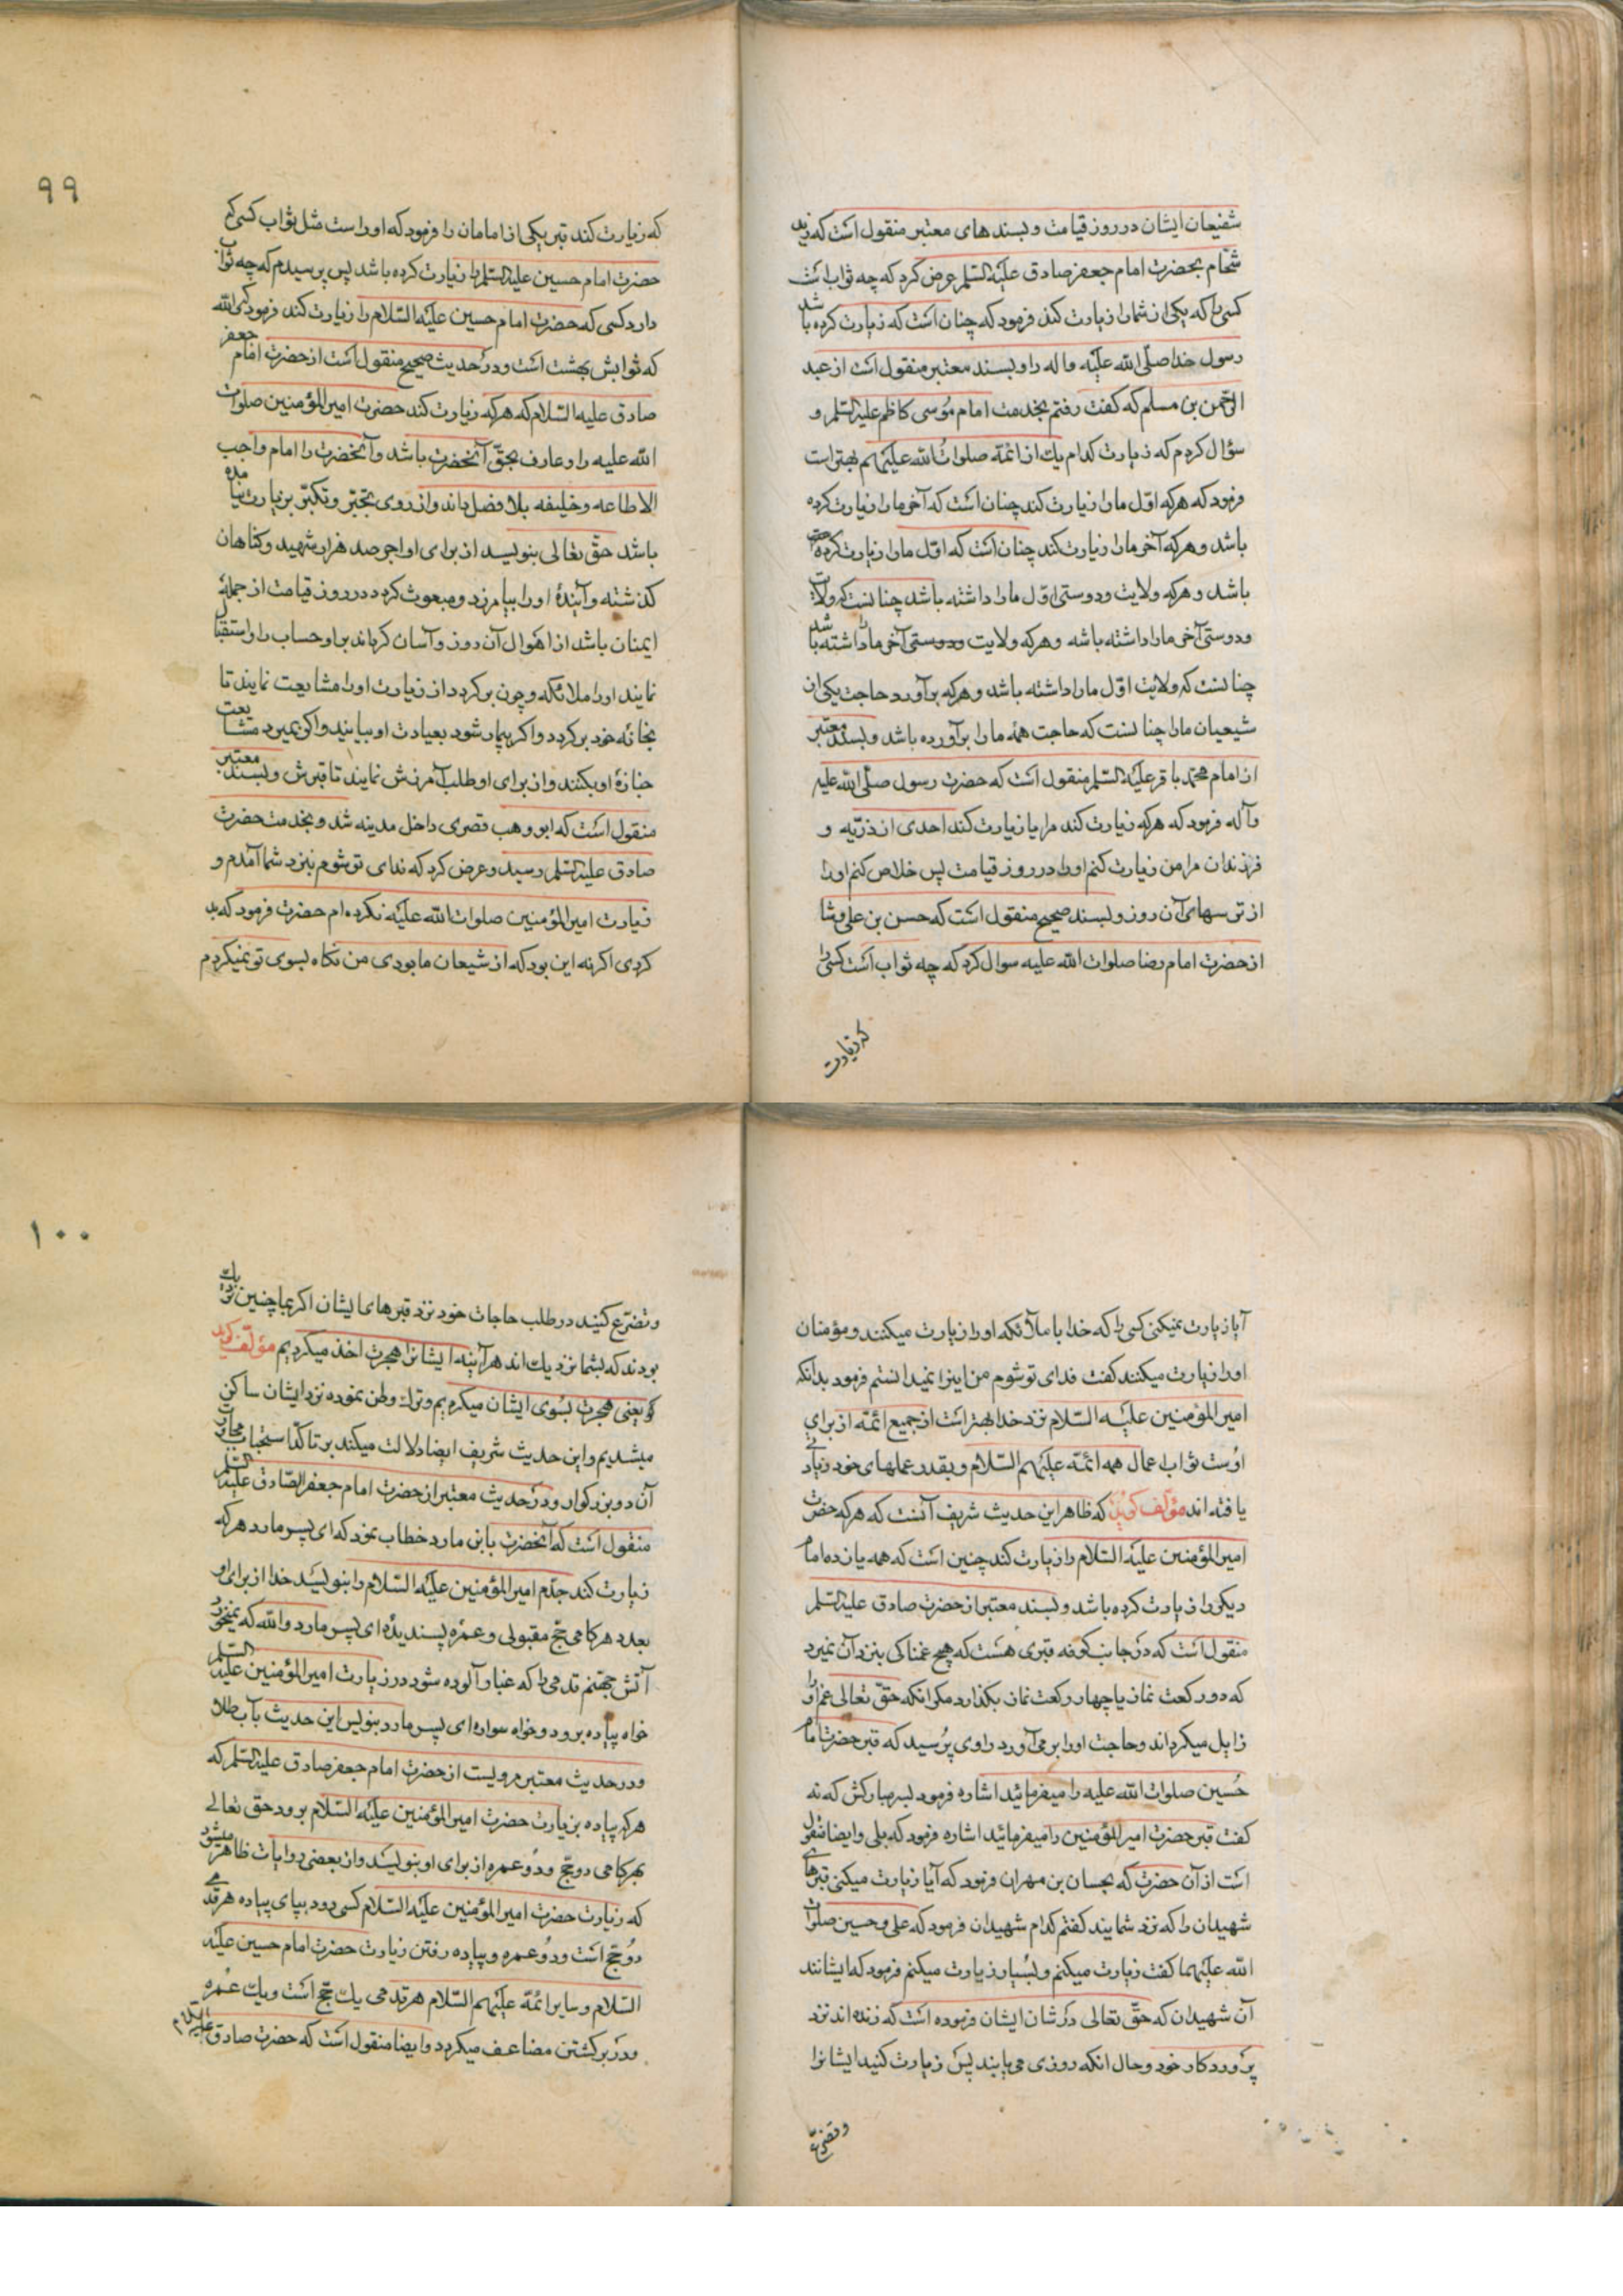 شفیعان ایشان در روز قیامت و بسند های معتبر منقول است که زید
شحام بحضرت امام جعفر صادق علیه السلم عرض کرد که چه ثواب است
کسی را که یکی از شما را زیارت کند فرمود که چنان است که زیارت کرده باشد
رسول خدا صلی الله علیه و اله را و بسند معتبر منقول است از عبد
الرحمن بن مسلم که کفت رفتم بخدمت امام موسی کاظم علیه السلم و
سؤال کردم که زیارت کدام یك از ائمه صلوات الله علیهم بهتر است
فرمود که هرکه اول ما را زیارت کند چنان است که آخر ما را زیارت کرده
باشد و هرکه آخر ما را زیارت کند چنان است که اول ما را زیارت کرده
باشد و هرکه ولایت و دوستی اول ما را داشته باشد چنانست که ولایت
و دوستی آخر ما را داشته باشه و هرکه ولایت و دوستی آخر ما را داشته باشد
چنانست که ولایت اول ما را داشته باشد و هرکه برآورد حاجت یکی از
شیعیان ما را چنانست که حاجت همه ما را برآورده باشد و بسند معتبر
از امام محمد باقر علیه السلم منقول است که حضرت رسول صلی الله علیه
و آله فرمود که هرکه زیارت کند مرا یا زیارت کند احدی از ذریه و
فرزندان مرا من زیارت کنم او را در روز قیامت پس خلاص کنم او را
از ترسهای آن روز و بسند صحیح منقول است که حسن بن علی وشا
از حضرت امام رضا صلوات الله علیه سوال کرد که چه ثواب است کسی را
که زیارت
۹۹
که زیارت کند قبر یکی از امامان را فرمود که او راست مثل ثواب کسی که
حضرت امام حسین علیه السلم را زیارت کرده باشد پس پرسیدم که چه ثواب
دارد کسی که حضرت امام حسین علیه السلام را زیارت کند فرمود که والله
که ثوابش بهشت است و در حدیث صحیح منقول است از حضرت امام جعفر
صادق علیه السلام که هرکه زیارت کند حضرت امیر المؤمنین صلوات
الله علیه را و عارف بحق آنحضرت باشد و آنحضرت را امام واجب
الاطاعه و خلیفه بلا فصل داند و از روی تجبر و تکبر بزیارت نیامده
باشد حق تعالی بنویسد از برای او اجر صد هزار شهید و کناهان
کذشته و آینده او را بیامرزد و مبعوث کردد در روز قیامت از جمله
ایمنان باشد از اهوال آن روز و آسان کرداند بر او حساب را و استقبال
نمایند او را ملائکه و چون بر کردد از زیارت او را مشایعت نمایند تا
بخانه خود بر کردد و اکر بیمار شود بعیادت او بیایند و اکر بمیرد مشایعت
جنازۀ او بکنند و از برای او طلب آمرزش نمایند تا قبرش و بسند معتبر
منقول است که ابو وهب قصری داخل مدینه شد و بخدمت حضرت
صادق علیه السلم رسید و عرض کرد که فدای تو شوم بنزد شما آمدم و
زیارت امیر المؤمنین صلوات الله علیه نکرده ام حضرت فرمود که بد
کردی اکر نه این بود که از شیعان ما بودی من نکاه بسوی تو نمیکردم
آیا زیارت نمیکنی کسی را که خدا با ملآئکه او را زیارت میکنند و مؤمنان
او را زیارت میکنند کفت فدای تو شوم من اینرا نمیدانستم فرمود بدانکه
امیر المؤمنین علیه السلام نزد خدا بهتر است از جمیع ائمه از برای
اوست ثواب اعمال همه ائمه علیهم السلام و بقدر عملهای خود زیادتی
یافته اند مؤلف کوید که ظاهر این حدیث شریف آنست که هرکه حضرت
امیر المؤمنین علیه السلام را زیارت کند چنین است که همه یازده امام
دیکر را زیارت کرده باشد و بسند معتبر از حضرت صادق علیه السلم
منقول است که در جانب کوفه قبری هست که هیچ غمناکی بنزد آن نمیرد
که دو رکعت نماز یا چهار رکعت نماز بکذارد مکر انکه حق تعالی غم او را
زایل میکرداند و حاجت او را بر می آورد راوی پرسید که قبر حضرت امام
حسین صلوات الله علیه را میفرمائید اشاره فرمود بسر مبارکش که نه
کفت قبر حضرت امیر المؤمنین را میفرمائید اشاره فرمود که بلی و ایضا منقول
است از آن حضرت که بحسان بن مهران فرمود که آیا زیارت میکنی قبرهای
شهیدان را که نزد شمایند کفتم کدام شهیدان فرمود که علی و حسین صلوات
الله علیهما کفت زیارت میکنم و بسیار زیارت میکنم فرمود که ایشانند
آن شهیدان که حق تعالی در شان ایشان فرموده است که زنده اند نزد
پروردکار خود و حال انکه روزی می یابند پس زیارت کنید ایشانرا
و تضرع
۱۰۰
و تضرع کنید در طلب حاجات خود نزد قبرهای ایشان اکر بما چنین نزدیك
بودند که بشما نزدیك اند هر آینه ایشانرا هجرت اخذ میکردیم مؤلف کوید
کو یعنی هجرت بسوی ایشان میکردیم و ترك وطن نموده نزد ایشان ساکن
میشدیم و این حدیث شریف ایضا دلالت میکند بر تاکد استحباب مجاورت
آن دو بزرکوار و در حدیث معتبر از حضرت امام جعفر الصادق علیه السلم
منقول است که آنحضرت بابن مارد خطاب نمود که ای پسر مارد هرکه
زیارت کند جدم امیر المؤمنین علیه السلام را بنویسد خدا از برای او
بعدد هر کامی حج مقبولی و عمره پسندیدۀ ای پسر مارد والله که نمیخورد
آتش جهنم قدمی را که غبار آلوده شود در زیارت امیر المؤمنین علیه السلم
خواه پیاده برود و خواه سواره ای پسر مارد بنویس این حدیث بآب طلا
و در حدیث معتبر مرویست از حضرت امام جعفر صادق علیه السلم که
هرکه پیاده بزیارت حضرت امیر المؤمنین علیه السلام برود حق تعالی
بهر کامی دو حج و دو عمره از برای او بنویسد و از بعضی روایات ظاهر میشود
که زیارت حضرت امیر المؤمنین علیه السلام کسی رود بپای پیاده هر قدمی
دو حج است و دو عمره و پیاده رفتن زیارت حضرت امام حسین علیه
السلام و سایر ائمه علیهم السلام هر قدمی یك حج است و یك عمره
و در برکشتن مضاعف میکردد و ایضا منقول است که حضرت صادق علیه السلام